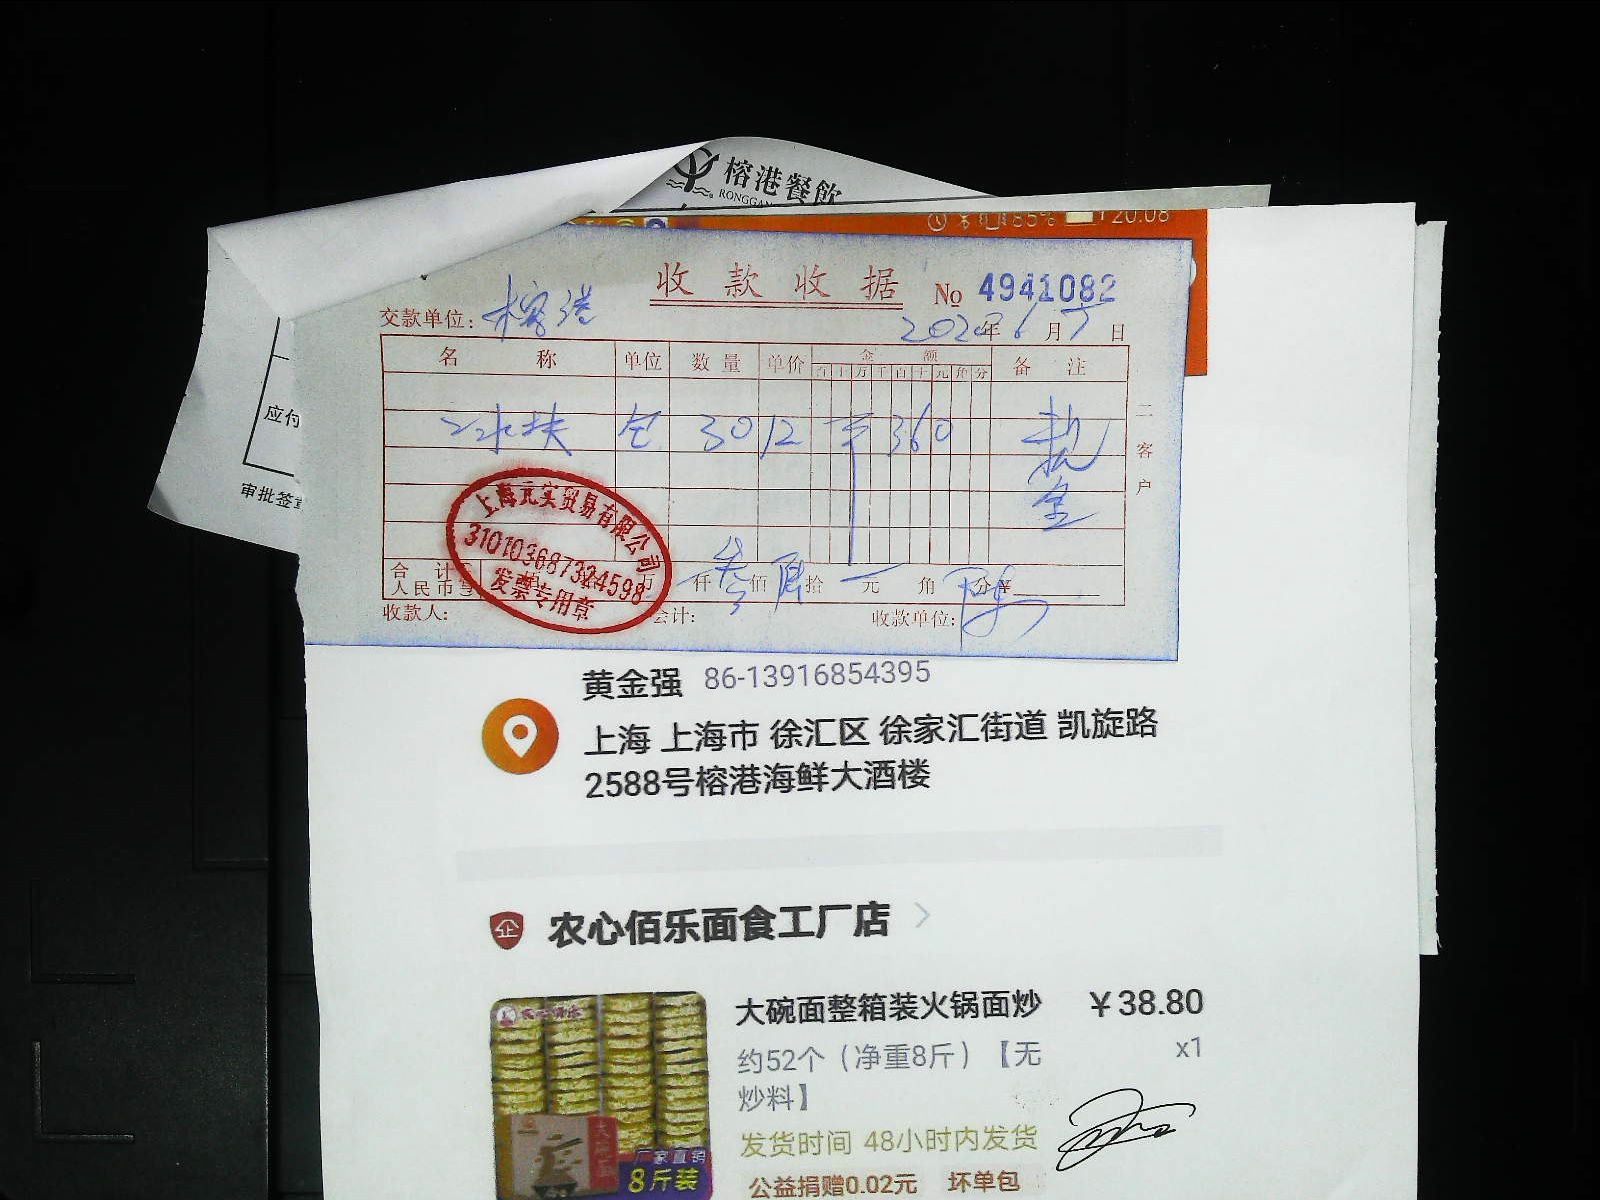 榕港餐飲
85% 20:08
收款收据 № 4941082
交款单位: 榕港 2020年6月5日
名称 单位 数量 单价 金额 备注
百十万千百十元角分
包 30 12 360
二客户
上海元实贸易有限公司
310103687324598
发票专用章
合计
人民币 万 仟 叁佰 陆拾 元 角 分 ¥
收款人: 会计: 收款单位:
应付
审批签章
黄金强 86-13916854395
上海 上海市 徐汇区 徐家汇街道 凯旋路
2588号榕港海鲜大酒楼
企 农心佰乐面食工厂店
大碗面整箱装火锅面炒 ￥38.80
约52个（净重8斤）【无 x1
炒料】
发货时间 48小时内发货
公益捐赠0.02元 坏单包
厂家直销
8斤装